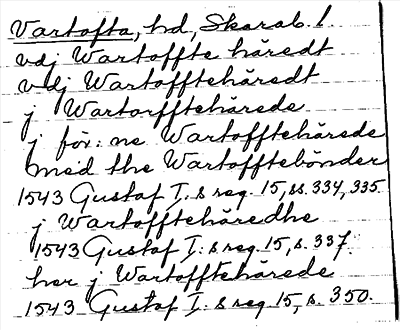 Vartofta, hd, Skarab. l.
vdj Wartoffte häredt
vdj Wartofftehäredt
j Wartorfftehärede
j för: ne Wartofftehärede
med the Wartofftebönder
1543 Gustaf I:s reg. 15, ss. 334, 335.
j Wartofftehäredhe
1543 Gustaf I:s reg. 15, s. 337.
her j Wartofftehärede
1543 Gustaf I:s reg 15, s. 350.